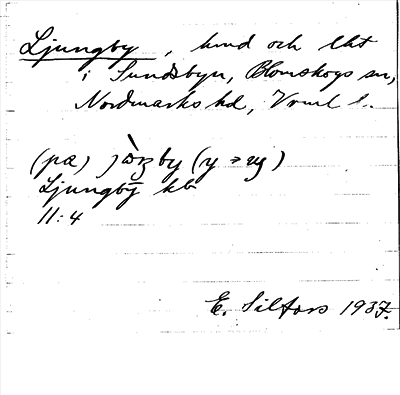 Ljungby, hmd och lht
i Sundsbyn, Blomskogs sn,
Nordmarks hd, Vrml l.
(pæ) by (y → yj)
Ljungby kb
11:4
E. Silfors 1937.